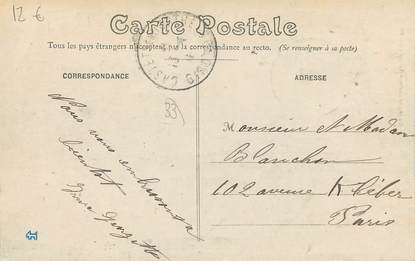 12 €
Carte Postale
Tous les pays étrangers n'acceptent pas la correspondance au recto. (Se renseigner à sa poste)
CORRESPONDANCE
ADRESSE
33
Nous vous embrassons
bientôt
M
Monsieur et Madam
Blanchon
102 avenue Kléber
Paris